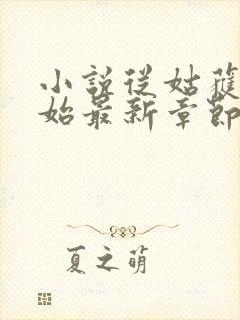 小說從姑獲
始最新章節
夏之萌